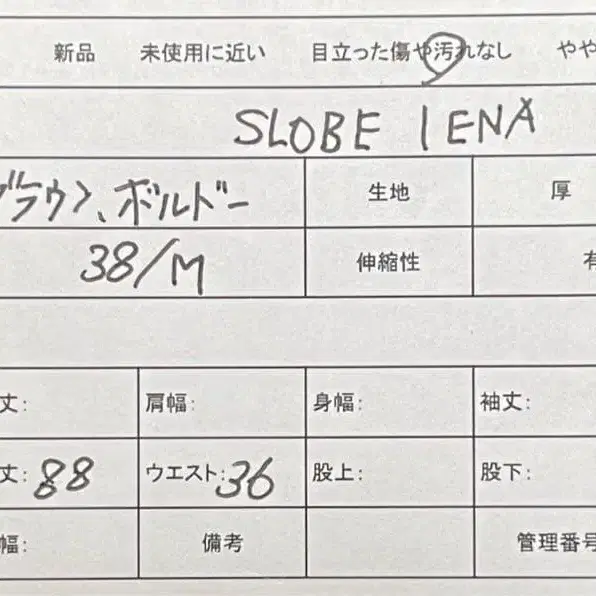 新品 未使用に近い 目立った傷や汚れなし やや
SLOBE IENA
ブラウン、ボルドー 生地 厚
38/M 伸縮性 有
丈: 肩幅: 身幅: 袖丈:
丈: 88 ウエスト: 36 股上: 股下:
幅: 備考 管理番号